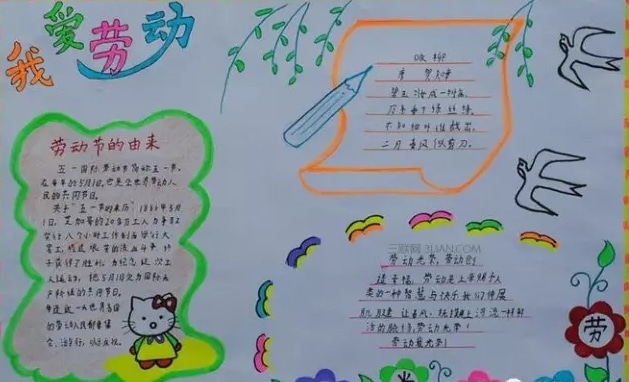 我爱劳动
劳动节的由来
五一国际劳动节简称五一节，
在每年的5月1日，也是全世界劳动人
民的共同节日。
关于“五一节的来历”1886年5月
1日，芝加哥的20多万工人为争取
实行八个小时工作制而举行大
罢工，经过艰苦的流血斗争，终
于获得了胜利，为纪念这次工
人运动，把5月1日定为国际无
产阶级的共同节日。
咏柳
唐 贺知章
碧玉妆成一树高，
万条垂下绿丝绦。
不知细叶谁裁出，
二月春风似剪刀。
三联网 3LIAN.COM
劳动光荣，劳动创
造幸福，劳动是上帝赐予人
类的一种智慧与快乐
劳动光荣！
劳动最光荣！
劳